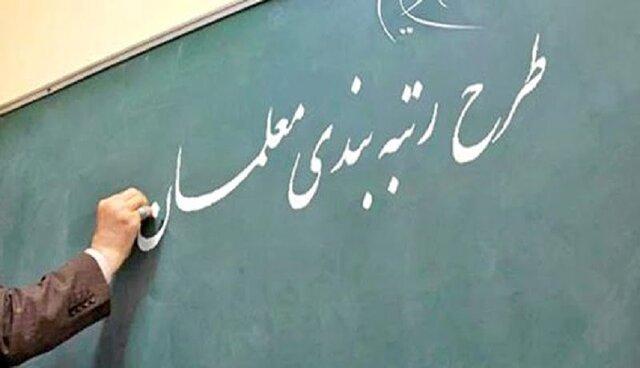 طرح رتبه بندی معلمان